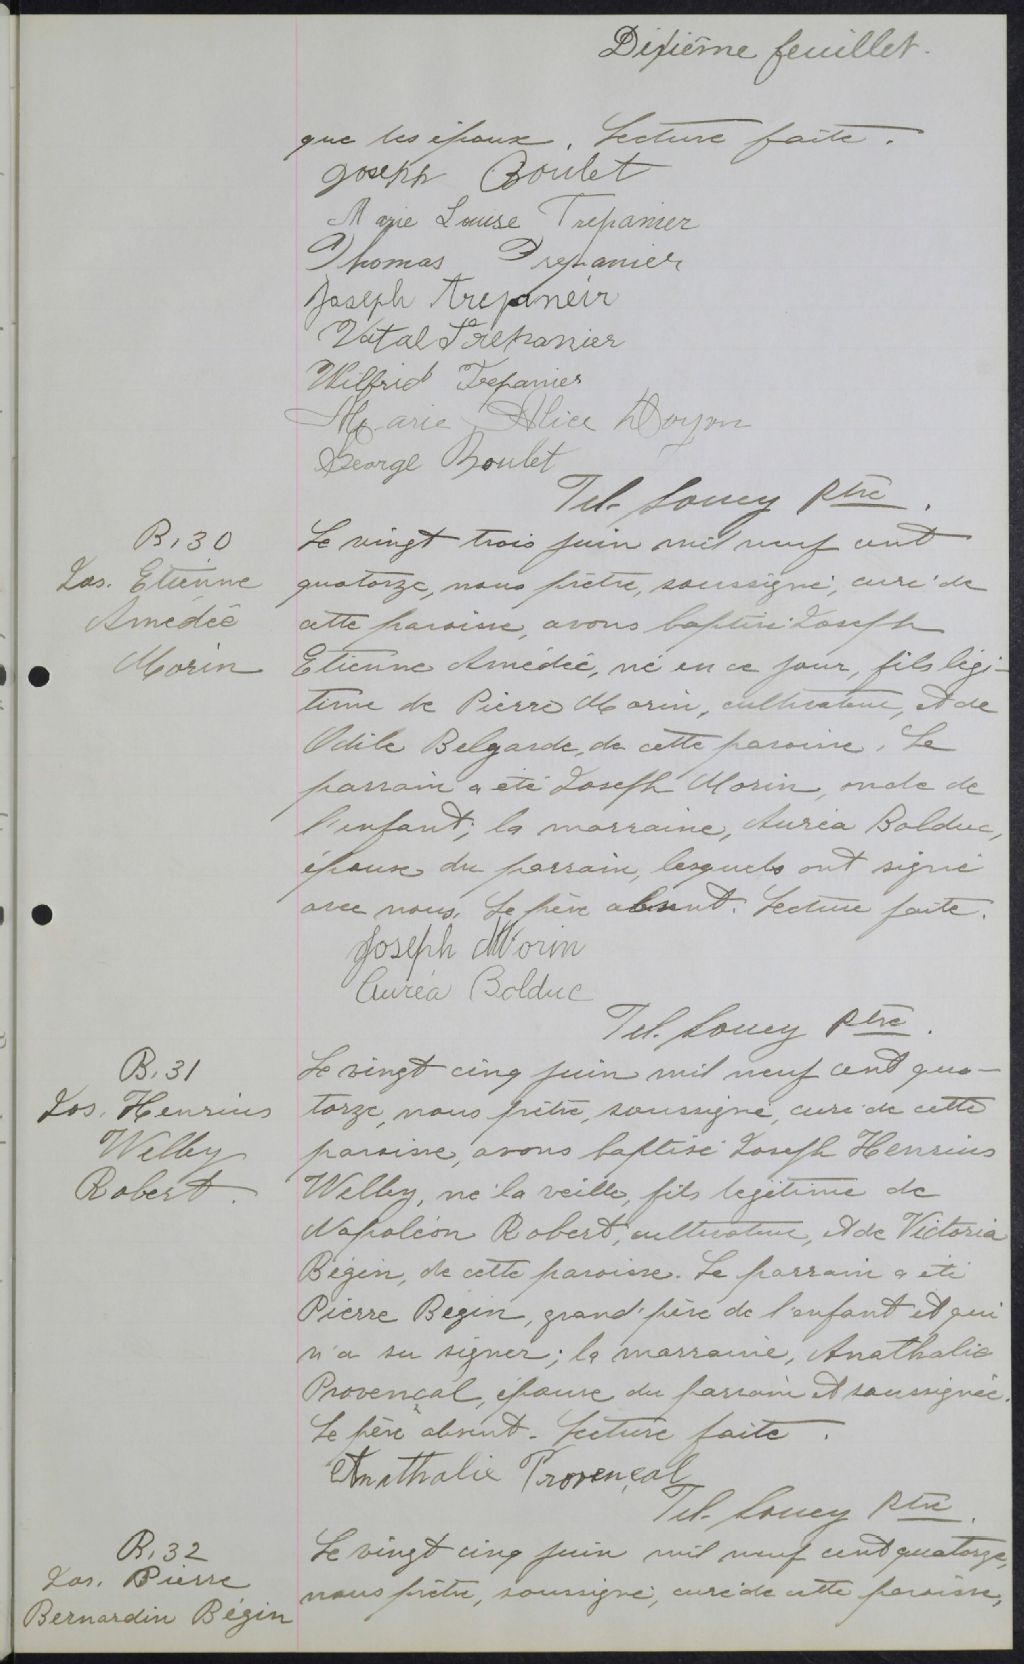 Dixième feuillet.
que les époux. Lecture faite.
Joseph Boulet
Marie Louise Trepanier
Thomas Trepanier
Joseph Trepaneir
Vital Trepanier
Wilfrid Trepanier
Marie Alice Doyon
George Boulet
Tél. Soucy Ptre.
B. 30
Jos. Etienne
Amédée
Morin
Le vingt trois juin mil neuf cent
quatorze, nous prêtre, soussigné, curé de
cette paroisse, avons baptisé Joseph
Etienne Amédée, né en ce jour, fils légi-
time de Pierre Morin, cultivateur, et de
Odile Belgarde, de cette paroisse. Le
parrain a été Joseph Morin, oncle de
l'enfant; la marraine, Auréa Bolduc,
épouse du parrain, lesquels ont signé
avec nous. Le père absent. Lecture faite.
Joseph Morin
Auréa Bolduc
Tél. Soucy Ptre.
B. 31
Jos. Henrius
Welby
Robert.
Le vingt cinq juin mil neuf cent qua-
torze, nous prêtre, soussigné, curé de cette
paroisse, avons baptisé Joseph Henrius
Welby, né la veille, fils légitime de
Napoléon Robert, cultivateur, et de Victoria
Bégin, de cette paroisse. Le parrain a été
Pierre Bégin, grand'père de l'enfant et qui
n'a su signer; la marraine, Anathalie
Provençal, épouse du parrain et soussignée.
Le père absent. Lecture faite.
Anathalie Provençal
Tél. Soucy Ptre.
B. 32
Jos. Pierre
Bernardin Bégin
Le vingt cinq juin mil neuf cent quatorze,
nous prêtre, soussigné, curé de cette paroisse,